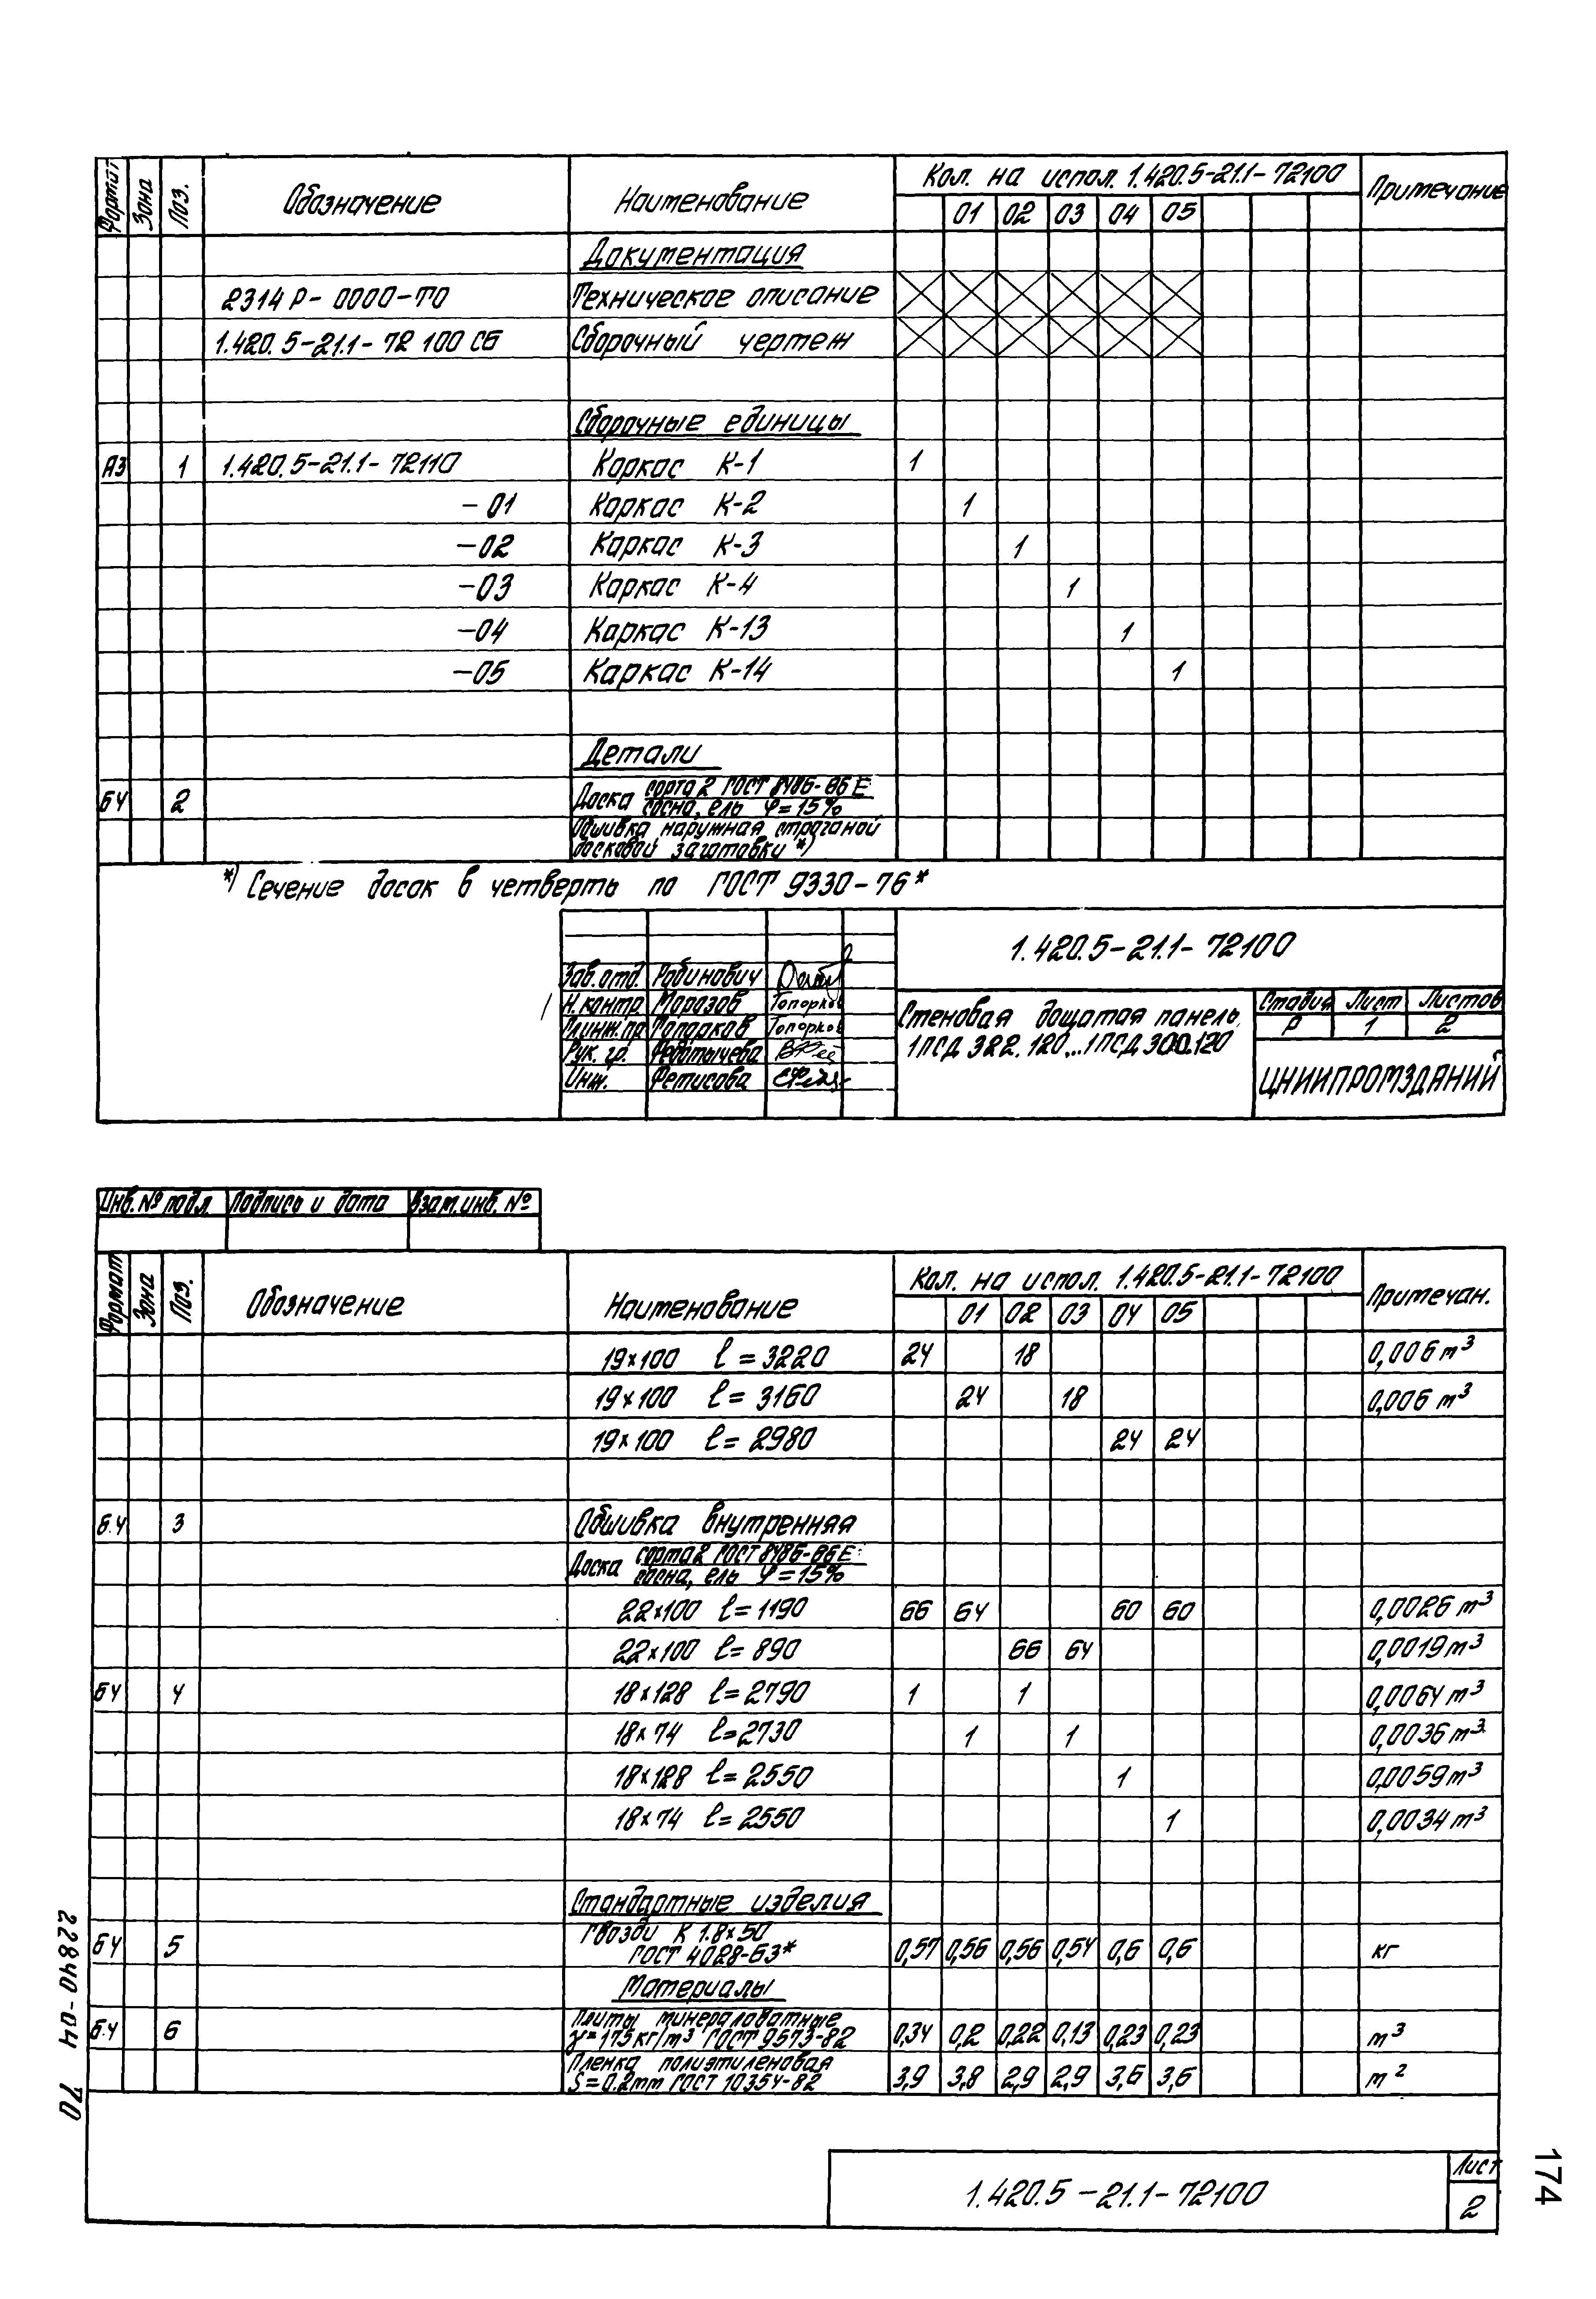 Формат Зона Поз. Обозначение Наименование Кол. на испол. 1.420.5-21.1-72100 Примечание
01 02 03 04 05
Документация
2314 Р- 0000-ТО Техническое описание
1.420.5-21.1-72 100 СБ Сборочный чертеж
Сборочные единицы
А3 1 1.420.5-21.1-72110 Каркас К-1 1
-01 Каркас К-2 1
-02 Каркас К-3 1
-03 Каркас К-4 1
-04 Каркас К-13 1
-05 Каркас К-14 1
Детали
БЧ 2 Доска сорта 2 ГОСТ 8486-86Е
сосна, ель φ=15%
Обшивка наружная строганой
досковой заготовки *)
*) Сечение досак в четверть по ГОСТ 9330-76*
1.420.5-21.1-72100
Зав.отд. Рабинович
Н.контр. Морозов Топорков
Гл.инж.пр. Топорков Топорков
Рук. гр. Федотычева
Инж. Фетисова
Стеновая дощатая панель
1ПСД 322.120...1ПСД 300.120
Стадия Лист Листов
Р 1 2
ЦНИИПРОМЗДАНИЙ
Инв.№ подл. Подпись и дата Взам.инв. №
Формат Зона Поз. Обозначение Наименование Кол. на испол. 1.420.5-21.1-72100 Примечан.
01 02 03 04 05
19×100 ℓ=3220 24 18 0,006 m³
19×100 ℓ=3160 24 18 0,006 m³
19×100 ℓ=2980 24 24
Б.Ч 3 Обшивка внутренняя
Доска сорта 2 ГОСТ 8486-86Е
сосна, ель φ=15%
22×100 ℓ=1190 66 64 60 60 0,0026 m³
22×100 ℓ=890 66 64 0,0019 m³
БЧ 4 18×128 ℓ=2790 1 1 0,0064 m³
18×74 ℓ=2730 1 1 0,0036 m³
18×128 ℓ=2550 1 0,0059 m³
18×74 ℓ=2550 1 0,0034 m³
Стандартные изделия
БЧ 5 Гвозди К 1.8×50
ГОСТ 4028-63* 0,57 0,56 0,56 0,54 0,6 0,6 кг
Материалы
Б.Ч 6 Плиты минераловатные
γ=175кг/m³ ГОСТ 9573-82 0,34 0,2 0,22 0,13 0,23 0,23 m³
Пленка полиэтиленовая
S=0.2mm ГОСТ 10354-82 3,9 3,8 2,9 2,9 3,6 3,6 m²
1.420.5-21.1-72100
Лист
2
22840-04 70
174